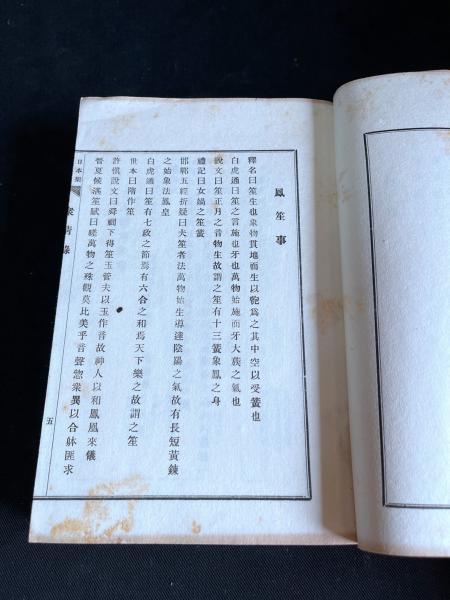 鳳笙事
釋名曰笙生也象物貫地而生以匏爲之其中空以受簧也
白虎通曰笙之言施也牙也萬物始施而牙大蔟之氣也
說文曰笙正月之音物生故謂之笙有十三簧象鳳之身
禮記曰女媧之笙簧
邯鄲五經折疑曰夫笙者法萬物始生導達陰陽之氣故有長短黃鍾
之始象法鳳皇
白虎通曰笙有七政之節焉有六合之和焉天下樂之故謂之笙
世本曰隋作笙
許愼說文曰舜祠下得笙玉管夫以玉作音故神人以和鳳凰來儀
晉夏候湛笙賦曰嗟萬物之殊觀莫比美乎音聲惣衆異以合躰匪求
日本樂
錄
五